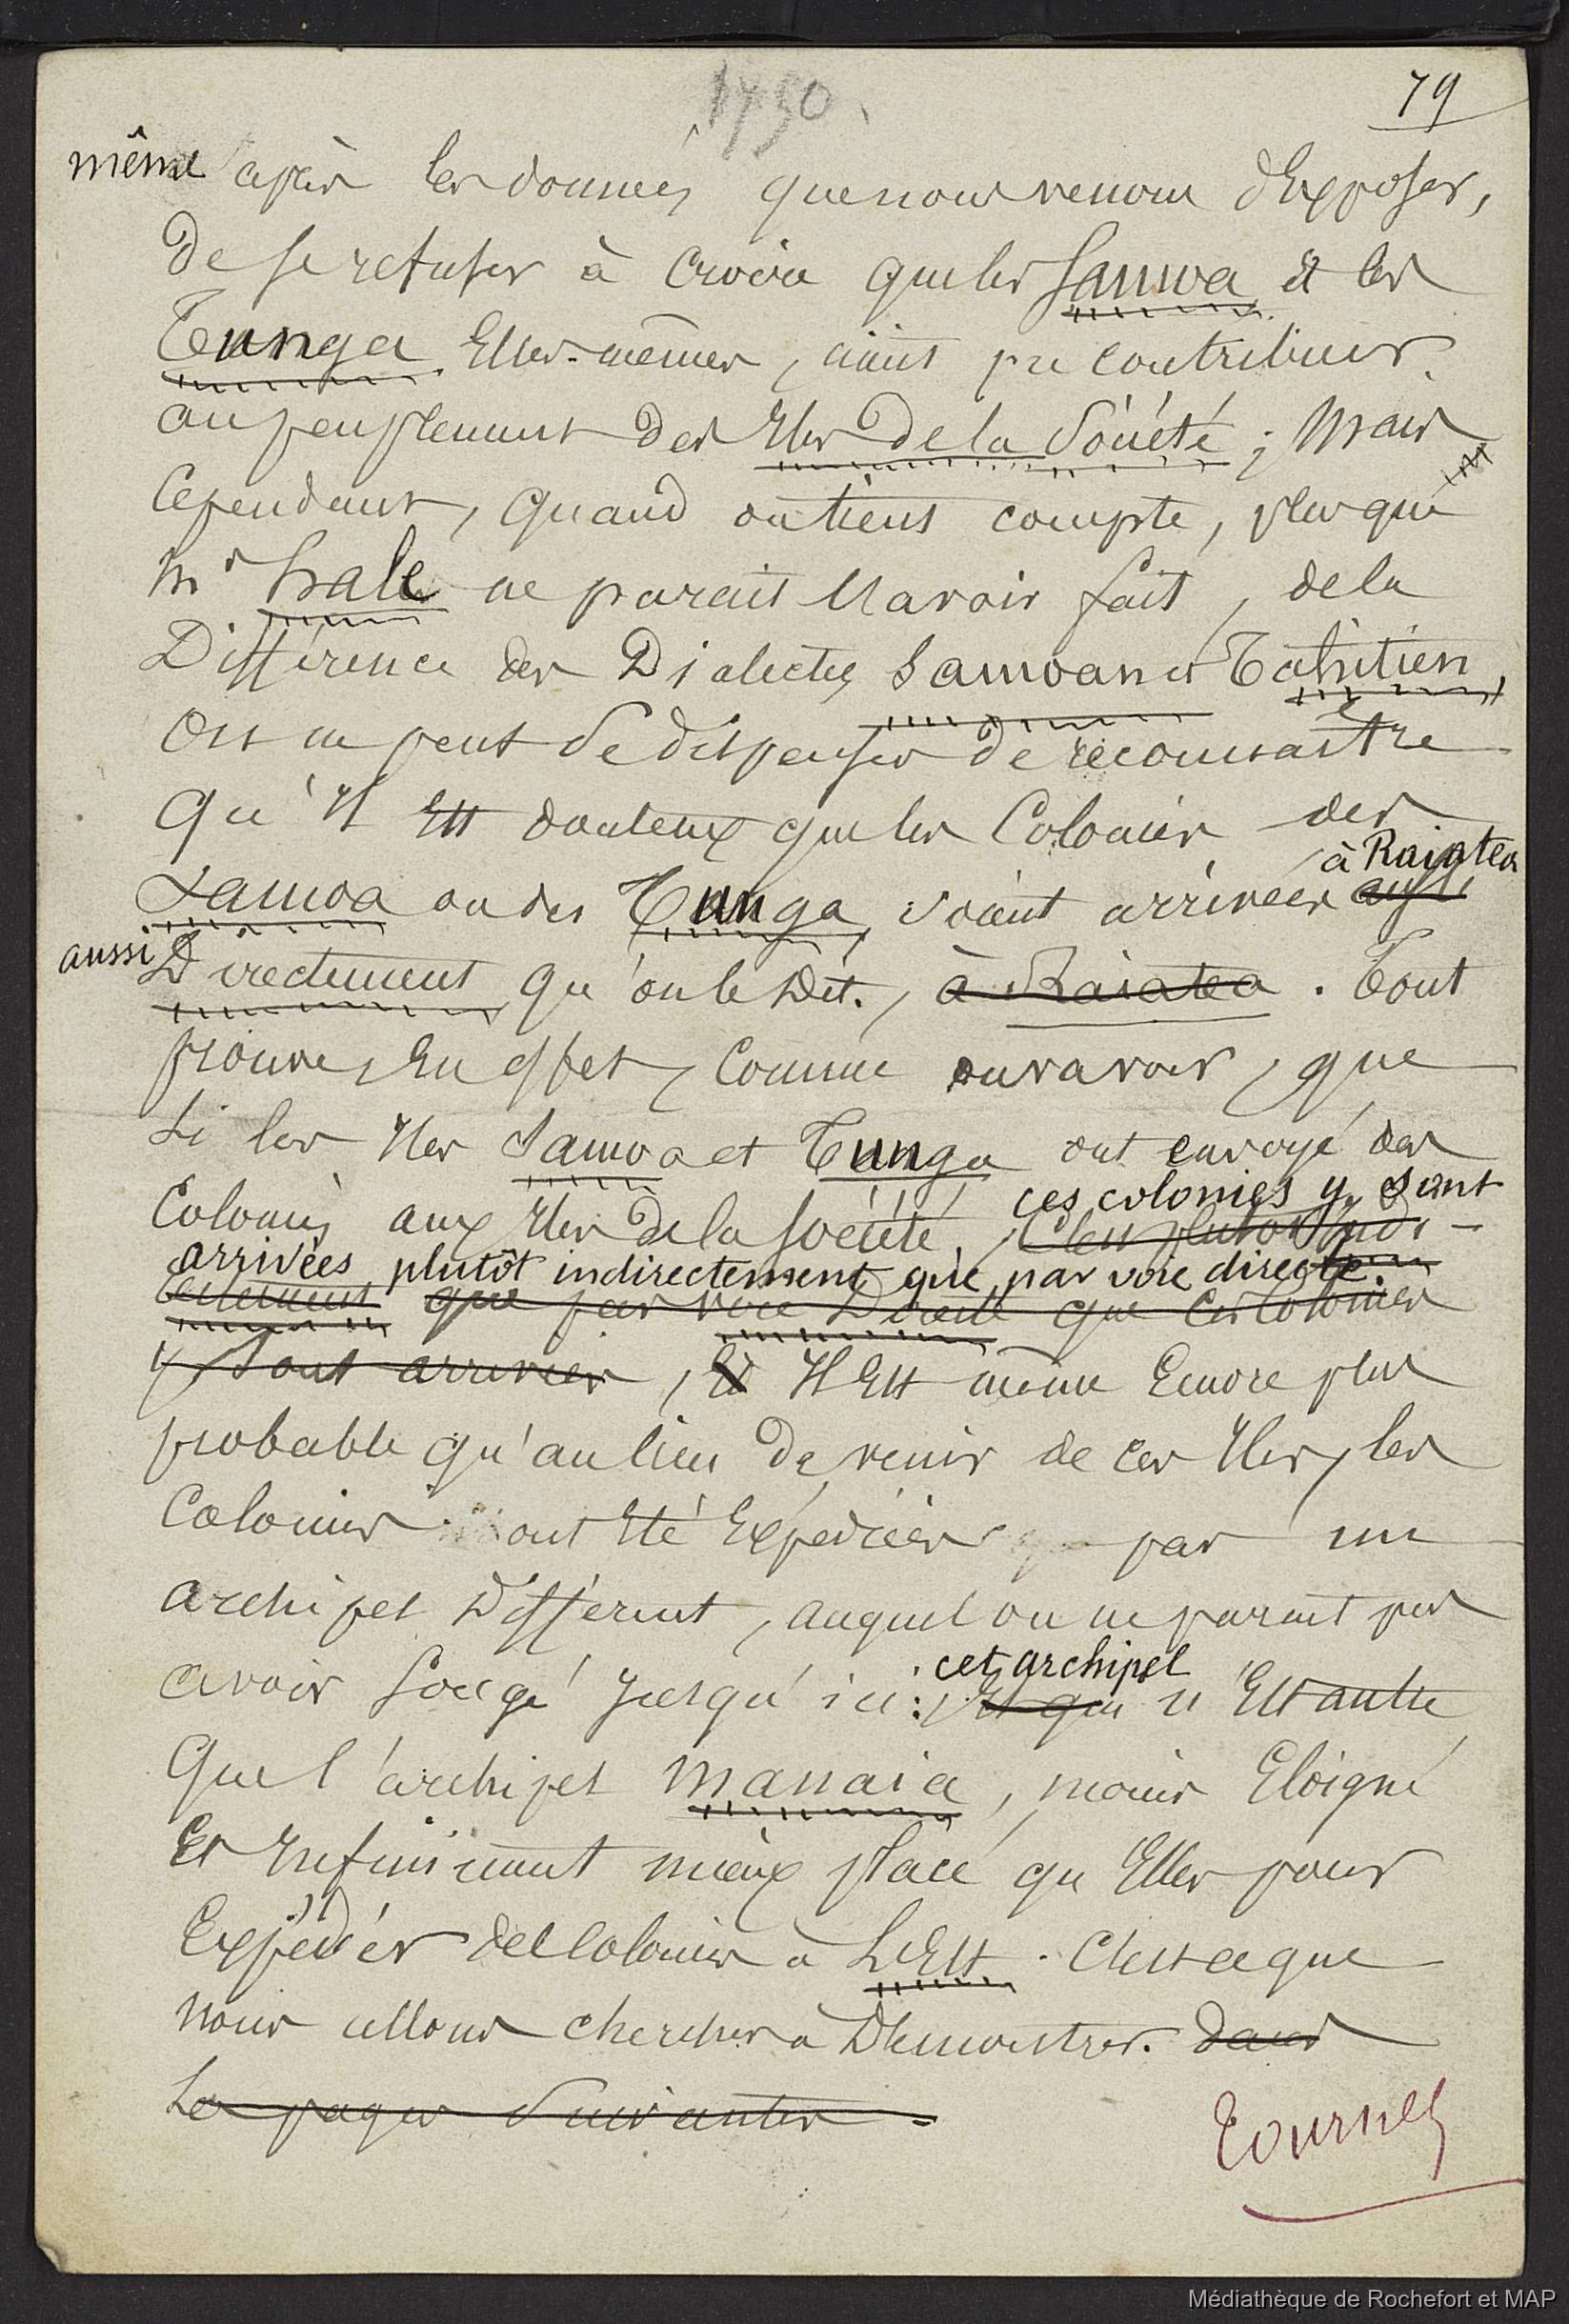 1750.
79
même après les données que nous venons d'Exposer,
de se refuser à croire que les Samoa et les
Tunga Elles-mêmes, aient pu contribuer
au peuplement des Iles de la Société ; Mais
Cependant, quand on tient compte, plus que
Mr hale ne parait l'avoir fait, de la
Différence des Dialectes Samoan et Tahitien,
On ne peut se dispenser de reconnaître
Qu'Il Est douteux que les Colonies des
à Raiatea
Samoa ou des Tunga, soient arrivées aussi
aussi Directement qu'on le Dit., à Raiatea. Tout
prouve, En effet, Comme on va voir, que
Si les Iles Samoa et Tunga ont envoyé des
ces colonies y sont
Colonies aux Iles de la Société, C'est plutôt indi-
arrivées plutôt indirectement que par voie directe.
rectement que par voie Directe que ces Colonies
y Sont arrivées, Et Il Est même Encore plus
probable qu'au lieu de venir de ces Iles, les
Colonies ont Eté Expédiées par un
archipel Différent, auquel on ne parait pas
cet archipel
avoir Songé Jusqu'ici : Et qui n'Est autre
Que l'archipel Manaia, moins Eloigné
Et Infiniment mieux placé qu'Elles pour
Expédier des Colonies à L'Est. C'est ce que
nous allons chercher à Démontrer. dans
Les pages Suivantes -
Tournez
Médiathèque de Rochefort et MAP